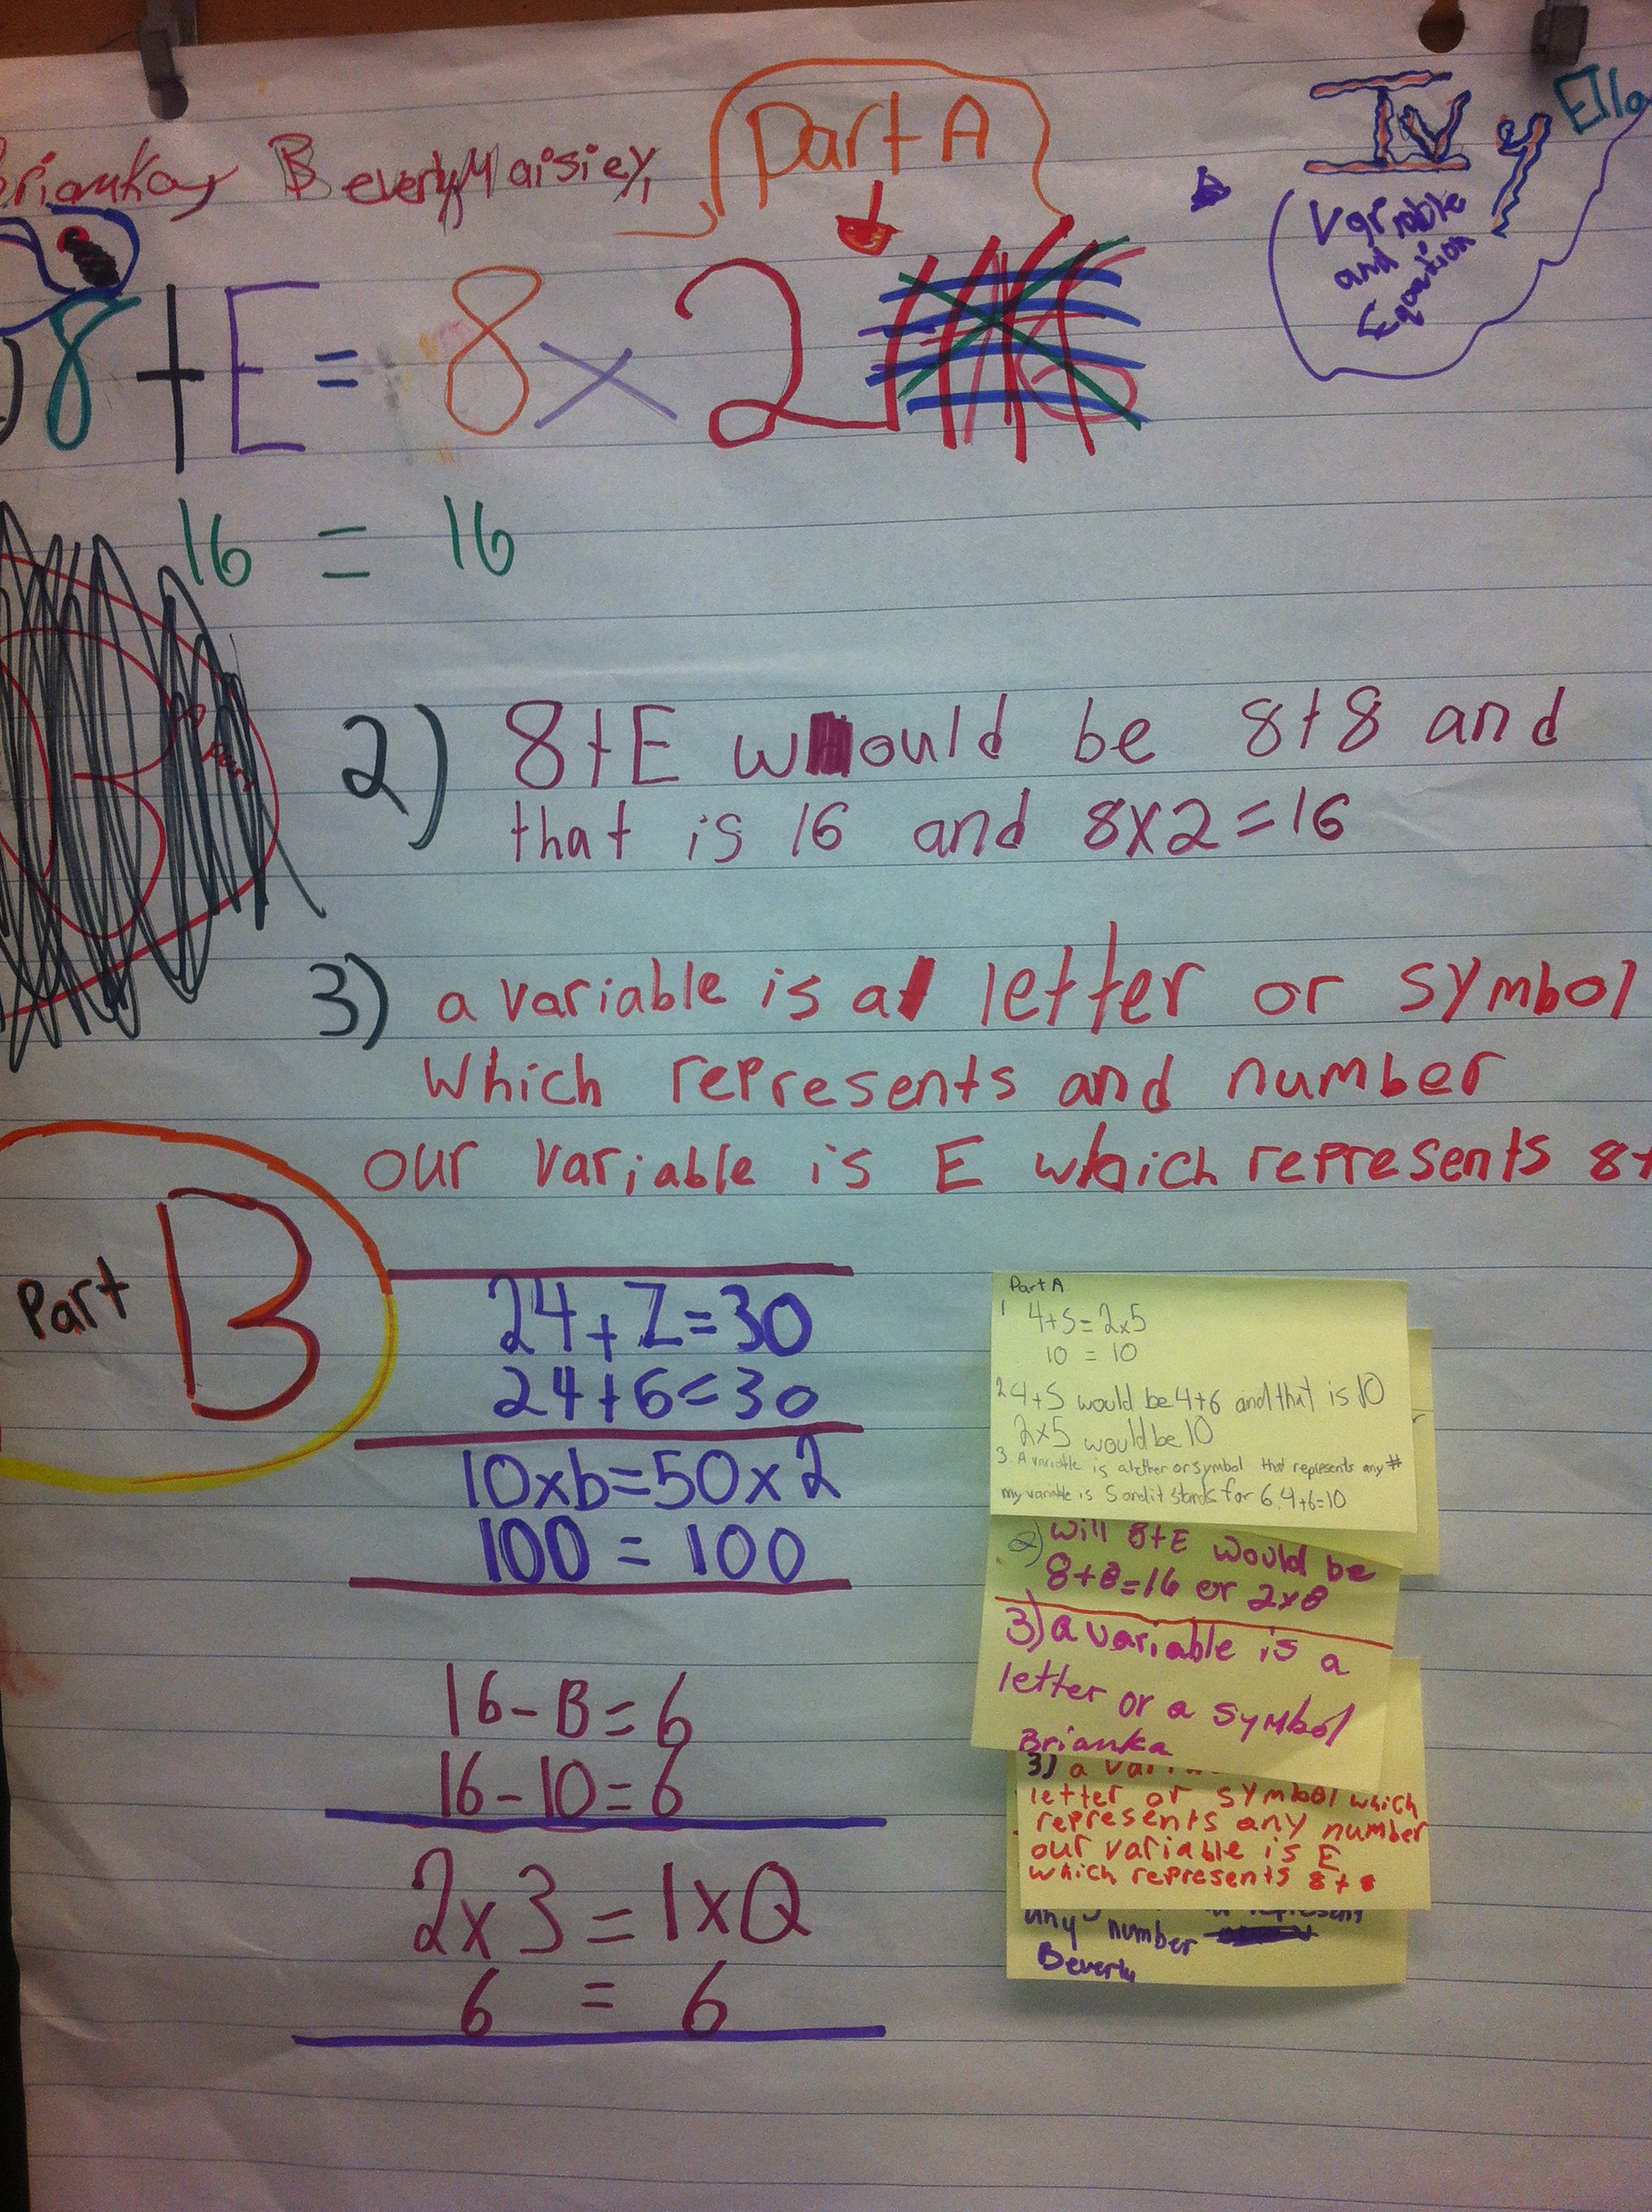 Brianka, Beverly, Maisiey,
Part A
IVy
Ella
Variable
and
Equation
8+E=8x2
16 = 16
2) 8+E would be 8+8 and
that is 16 and 8x2=16
3) a variable is a letter or symbol
which represents and number
our variable is E which represents 8+
Part B
24+Z=30
24+6=30
10xb=50x2
100 = 100
16-B=6
16-10=6
2x3=1xQ
6 = 6
Part A
1 4+S=2x5
10 = 10
2 4+S would be 4+6 and that is 10
2x5 would be 10
3. A variable is a letter or symbol that represents any #
my variable is S and it stands for 6. 4+6=10
2) will 8+E would be
8+8=16 or 2x8
3) a variable is a
letter or a symbol
Brianka
3) a
letter or symbol which
represents any number
our variable is E
which represents 8+8
represent
any number
Beverly